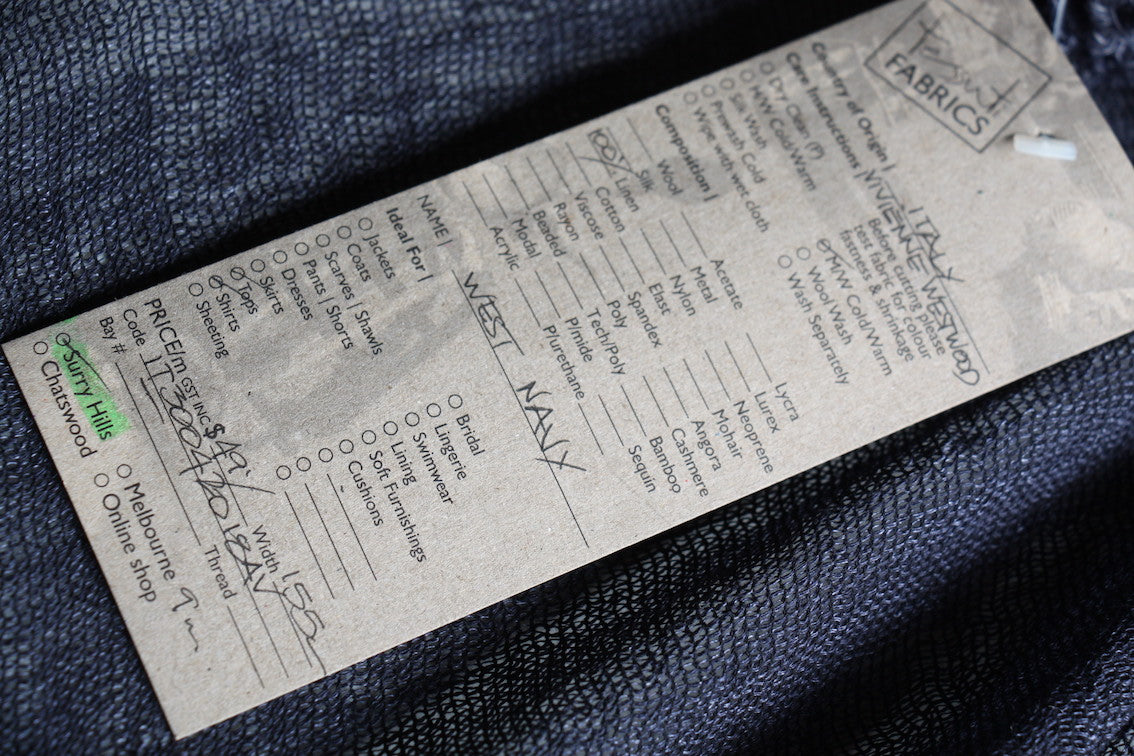 FABRICS
Country of Origin | ITALY
VIVIENNE WESTWOOD
Care Instructions |
Before cutting please
test fabric for colour
fastness & shrinkage
Dry Clean (P)
H/W Cold/Warm
Silk Wash
Prewash Cold
Wipe with wet cloth
M/W Cold/Warm
Wool Wash
Wash Separately
Composition |
Wool
Silk
100% Linen
Cotton
Viscose
Rayon
Beaded
Modal
Acrylic
Acetate
Metal
Nylon
Elast
Spandex
Poly
Tech/Poly
P/mide
P/urethane
Lycra
Lurex
Neoprene
Mohair
Angora
Cashmere
Bamboo
Sequin
NAME | WEST NAVY
Ideal For |
Jackets
Coats
Scarves | Shawls
Pants | Shorts
Dresses
Skirts
Tops
Shirts
Sheeting
Bridal
Lingerie
Swimwear
Lining
Soft Furnishings
Cushions
PRICE/m GST INC $49/ Width 155
Code
Bay # Thread
Surry Hills
Chatswood
Melbourne 9m
Online shop